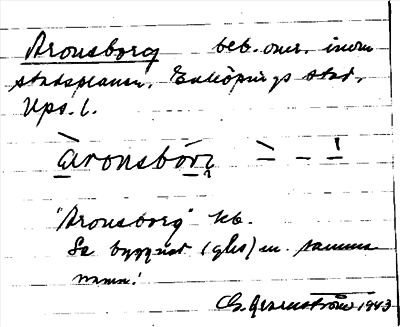 Aronsborg beb. omr. inom
stadsplanen. Enköpings stad,
Upps. l.
aronsbórg
"Aronsborg" kb.
Se byggnad (ghs) m. samma
namn!
1943